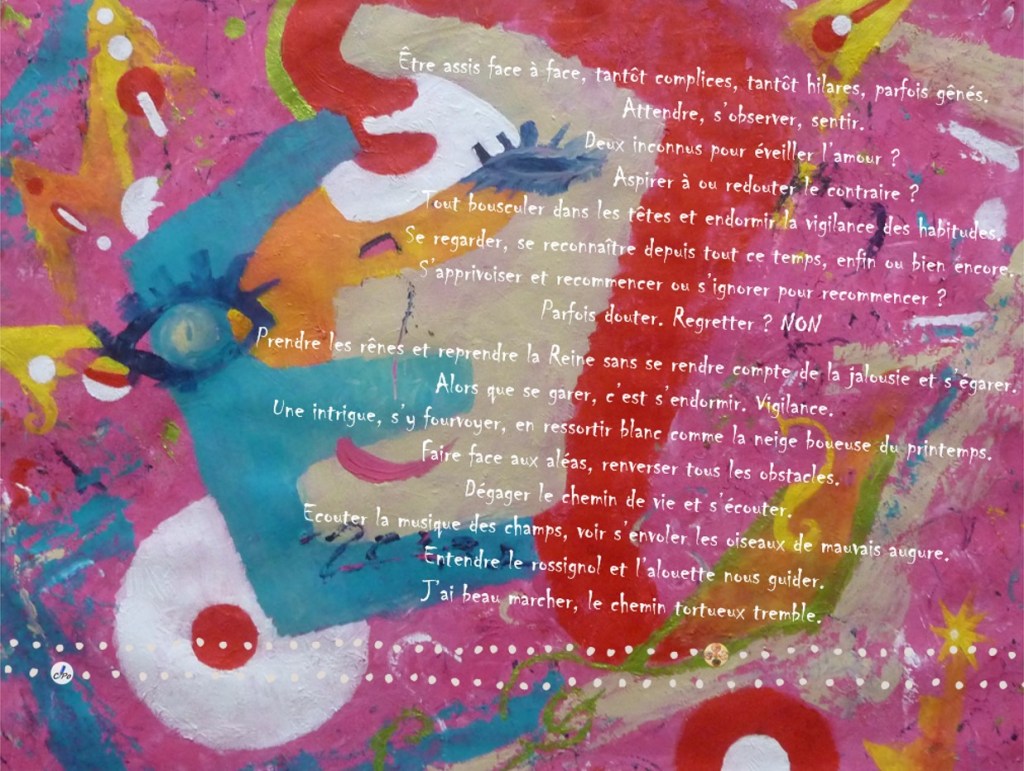 Être assis face à face, tantôt complices, tantôt hilares, parfois gênés.
Attendre, s'observer, sentir.
Deux inconnus pour éveiller l'amour ?
Aspirer à ou redouter le contraire ?
Tout bousculer dans les têtes et endormir la vigilance des habitudes.
Se regarder, se reconnaître depuis tout ce temps, enfin ou bien encore.
S'apprivoiser et recommencer ou s'ignorer pour recommencer ?
Parfois douter. Regretter ? NON
Prendre les rênes et reprendre la Reine sans se rendre compte de la jalousie et s'égarer.
Alors que se garer, c'est s'endormir. Vigilance.
Une intrigue, s'y fourvoyer, en ressortir blanc comme la neige boueuse du printemps.
Faire face aux aléas, renverser tous les obstacles.
Dégager le chemin de vie et s'écouter.
Ecouter la musique des champs, voir s'envoler les oiseaux de mauvais augure.
Entendre le rossignol et l'alouette nous guider.
J'ai beau marcher, le chemin tortueux tremble.